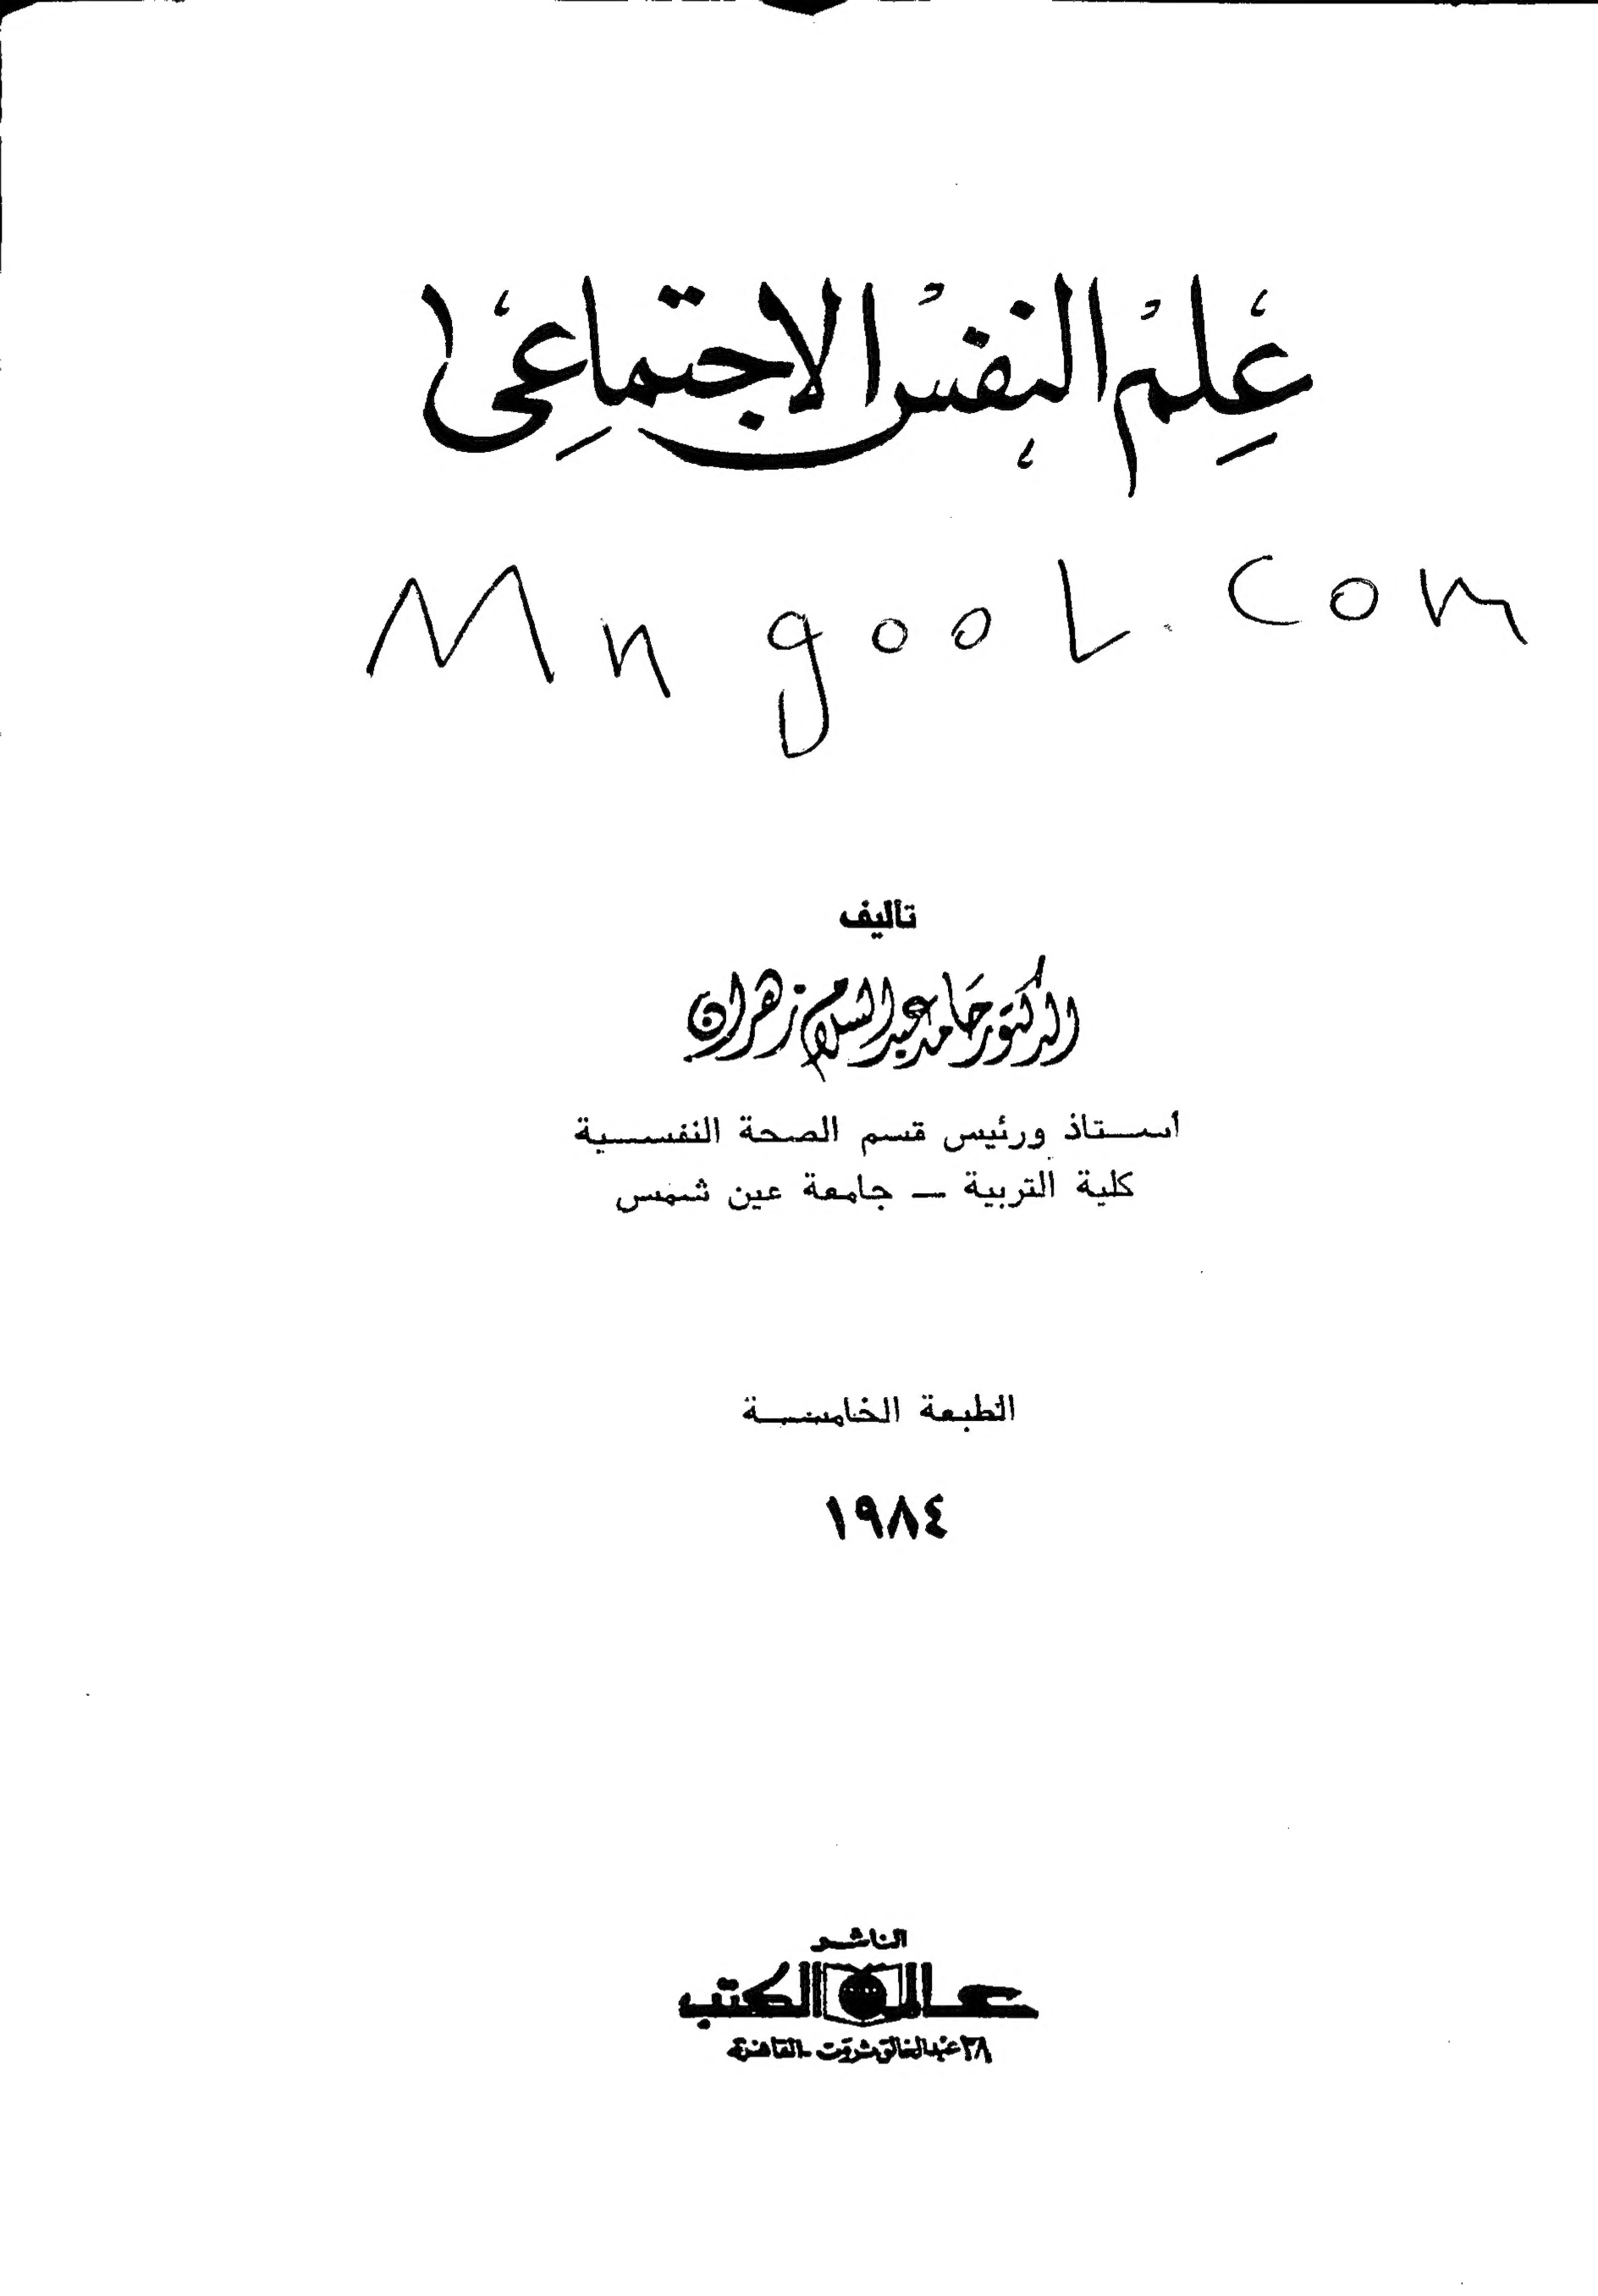 علم النفس الاجتماعى
Mn gool.com
تأليف
الدكتور حامد عبد السلام زهران
أستاذ ورئيس قسم الصحة النفسية
كلية التربية — جامعة عين شمس
الطبعة الخامسة
١٩٨٤
الناشر
عالم الكتب
٣٨ عبد الخالق ثروت - القاهرة